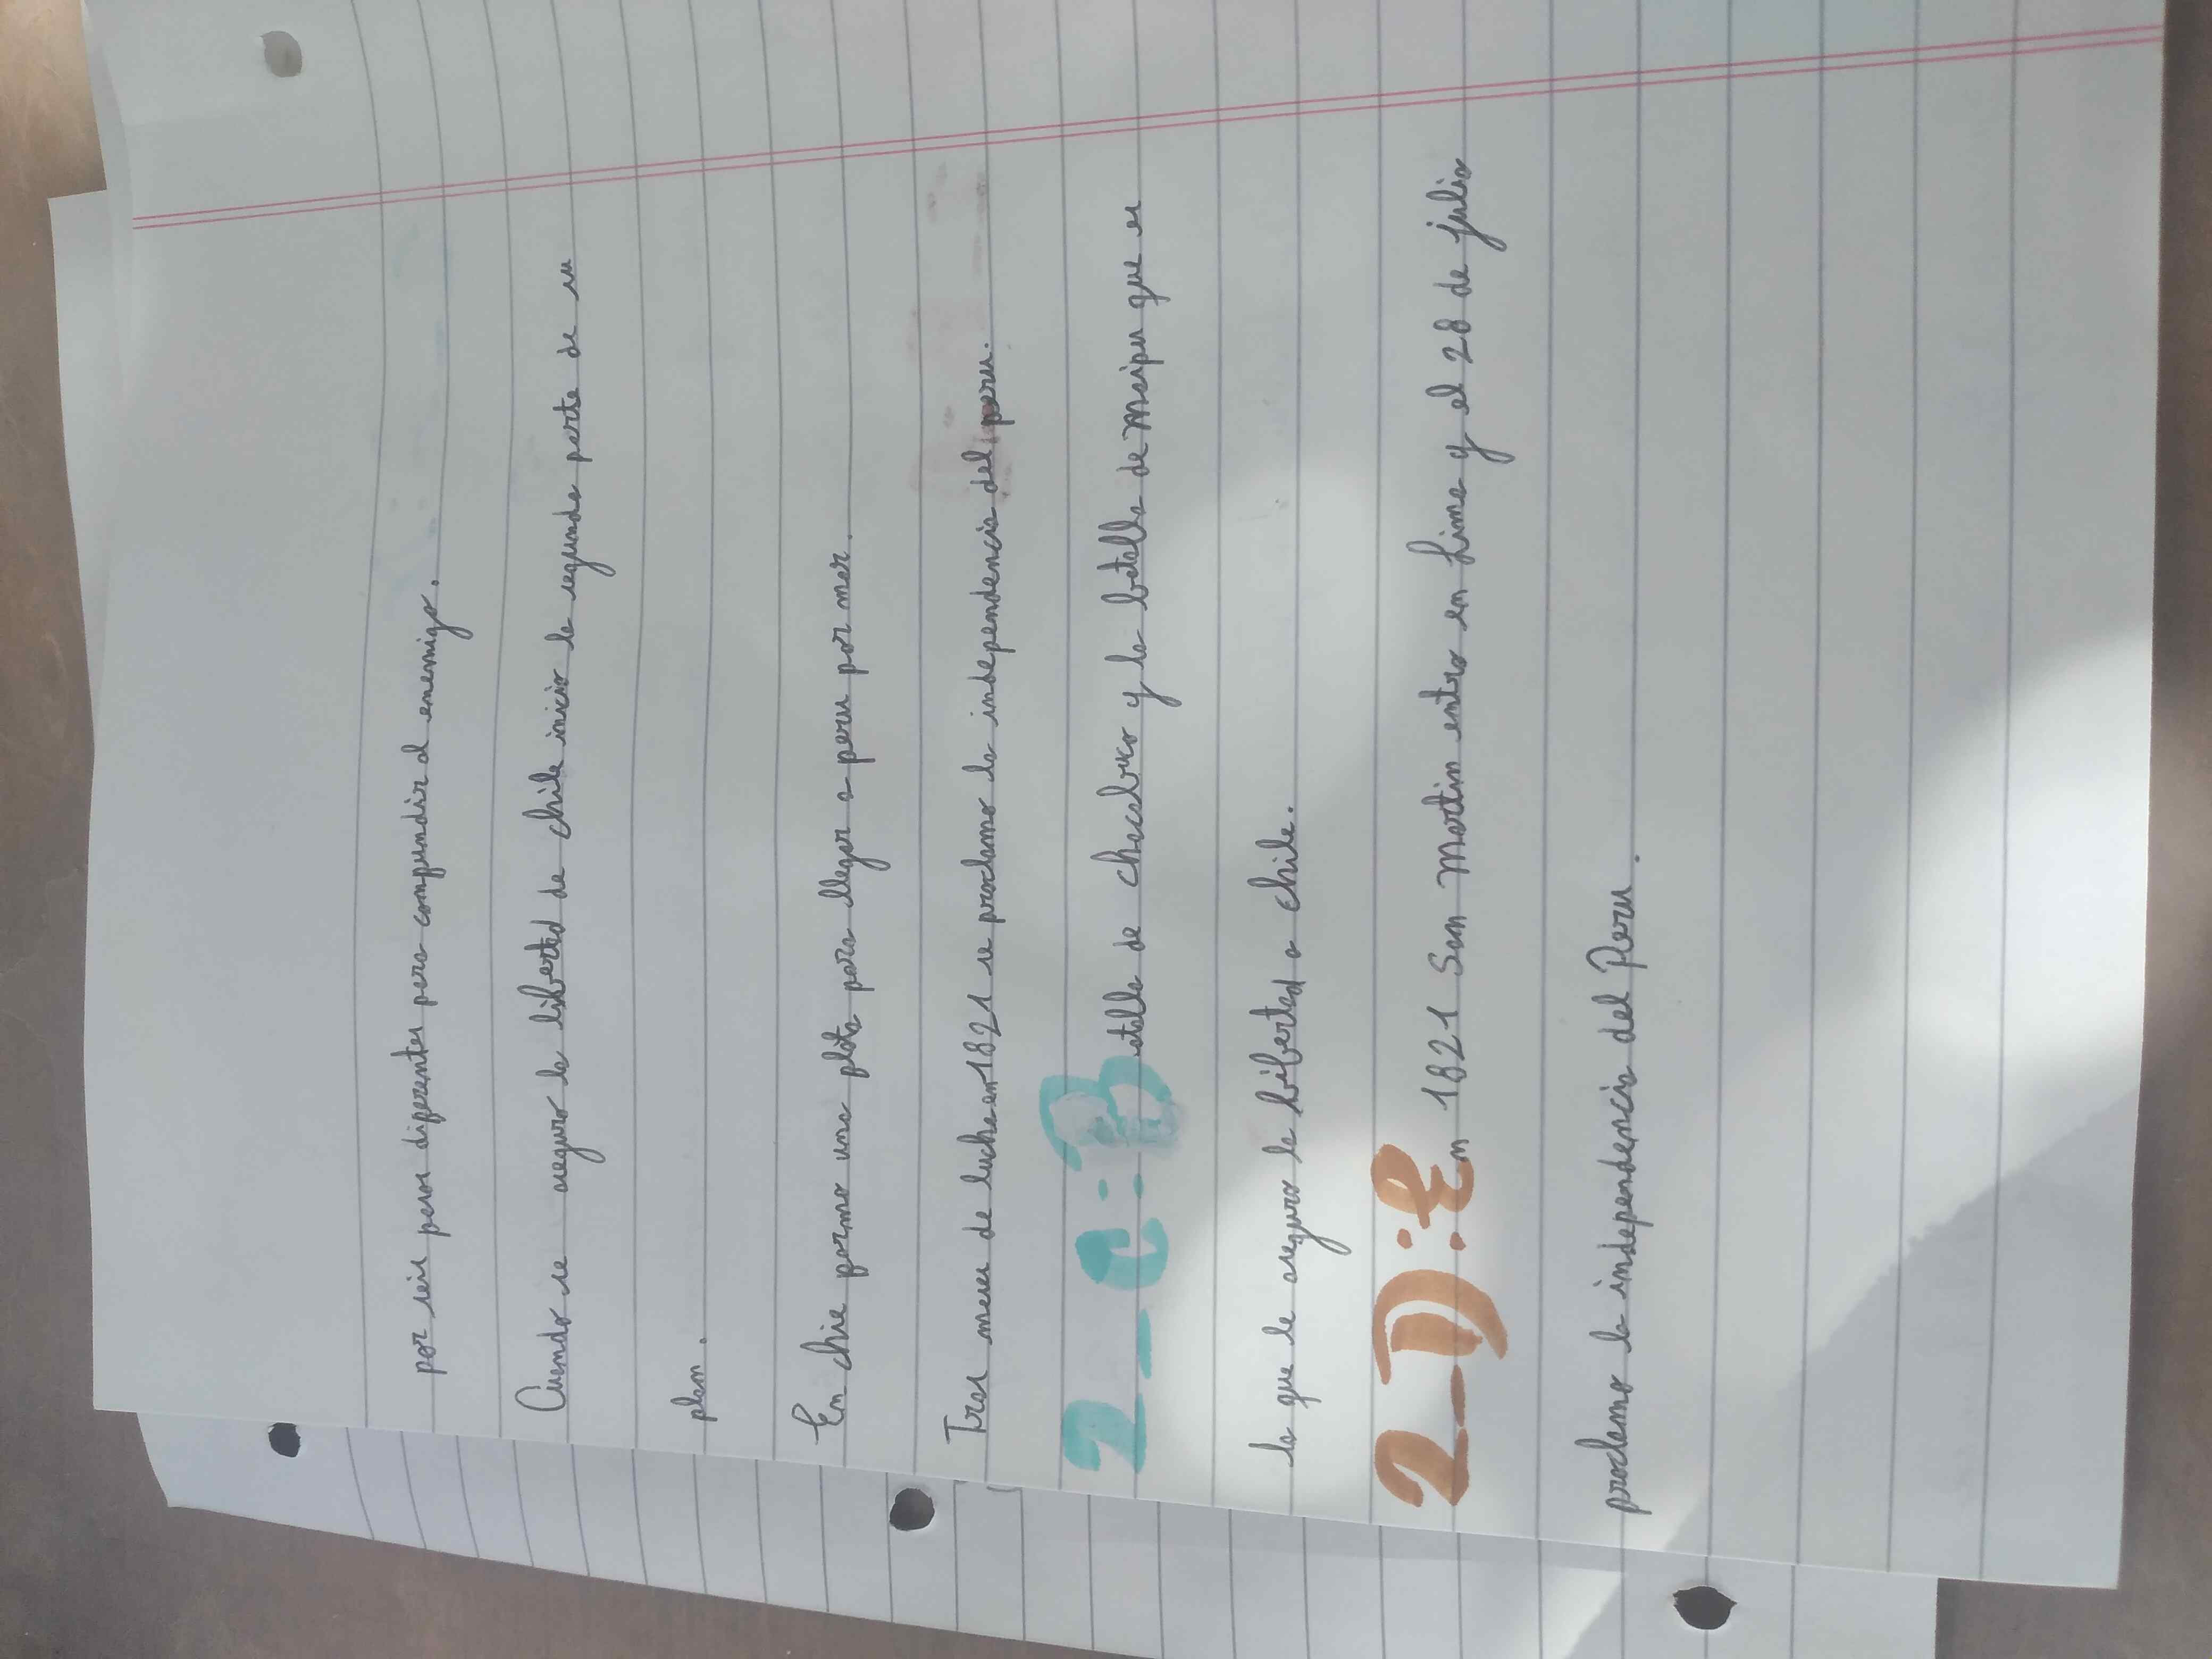 por seis pasos diferentes para compundir al enemigo.
Cuando se aseguro la libertad de chile inicio la segunda parte de su
plan.
En chie formo una flota para llegar a peru por mar.
Tras meses de lucha en 1821 se proclamo la independencia del peru.
2_C: Batalla de chacabuco y la batalla de Maipu que es
la que le aseguro la libertad a chile.
2_D): En 1821 San Martin entro en Lima y el 28 de julio
proclamo la independencia del Peru.